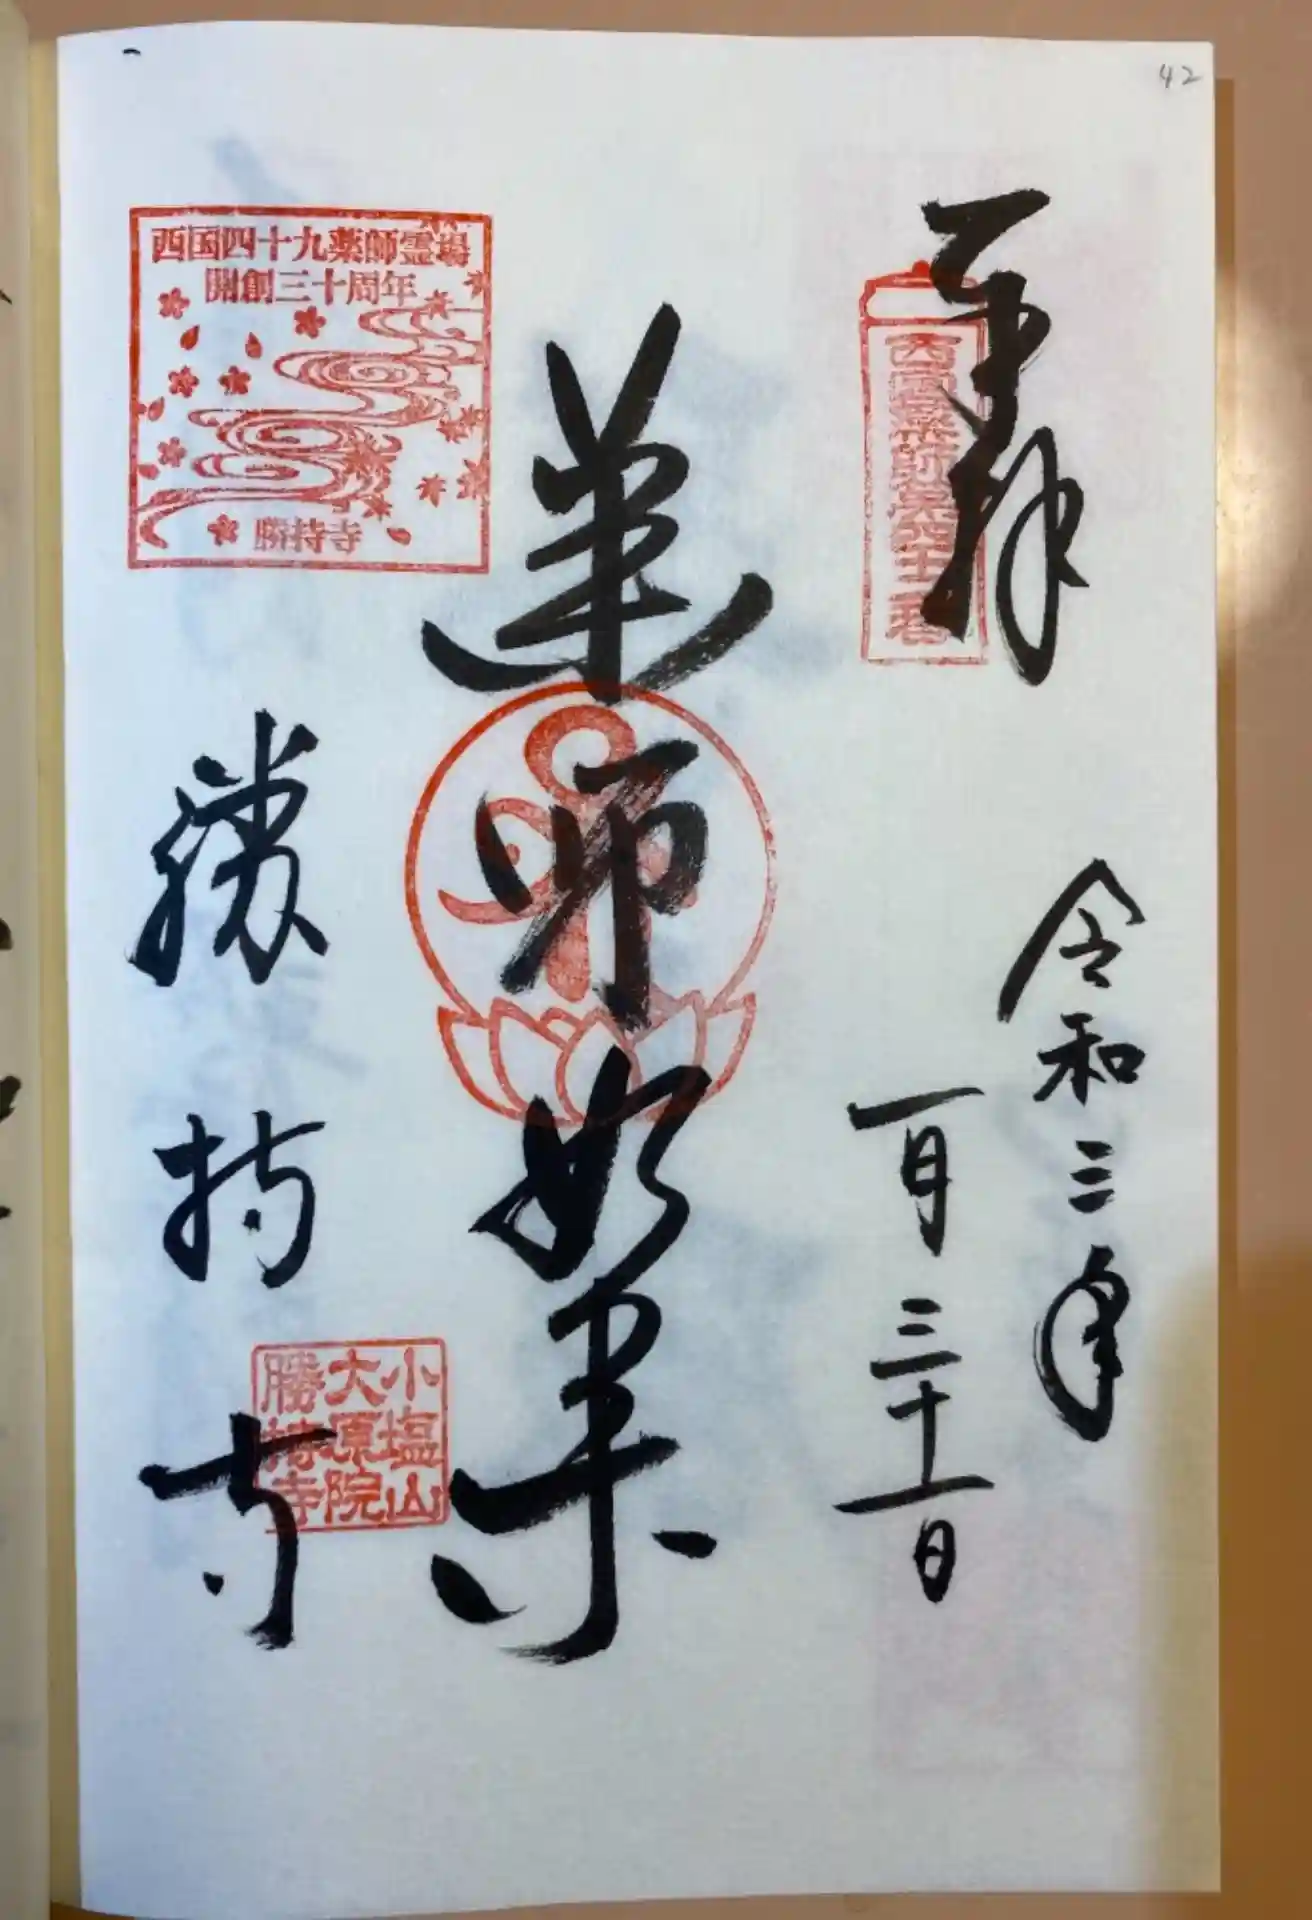 42
奉拝
西国薬師第四十二番
令和三年
一月三十一日
薬師如来
西国四十九薬師霊場
開創三十周年
勝持寺
勝持寺
小塩山
大原院
勝持寺